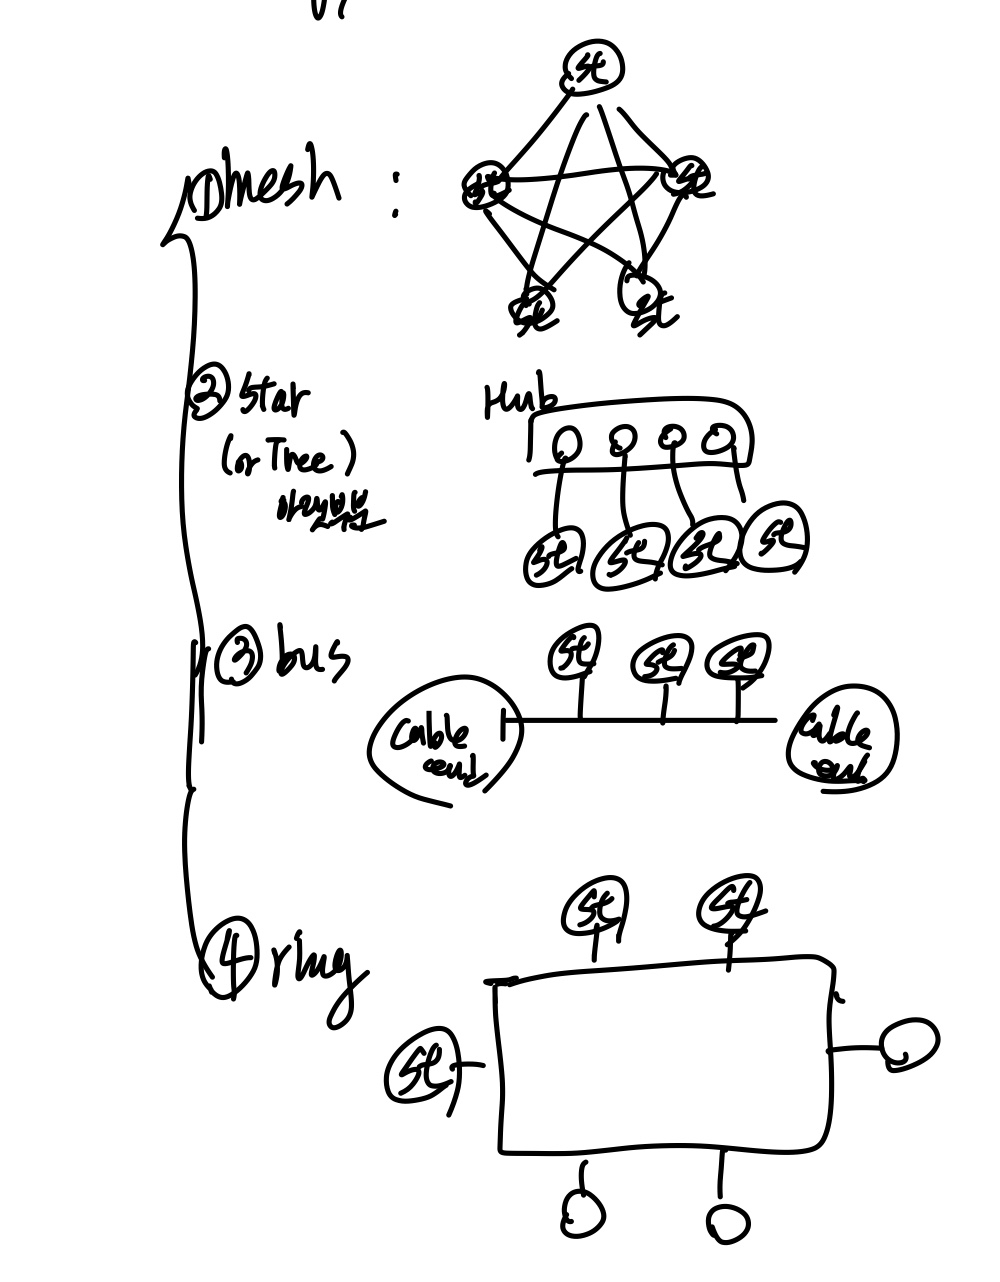 ① mesh :
st
st
st
st
st
② star
(or Tree)
Hub
st
st
st
st
③ bus
st
st
st
Cable
end
Cable
end
④ ring
st
st
st